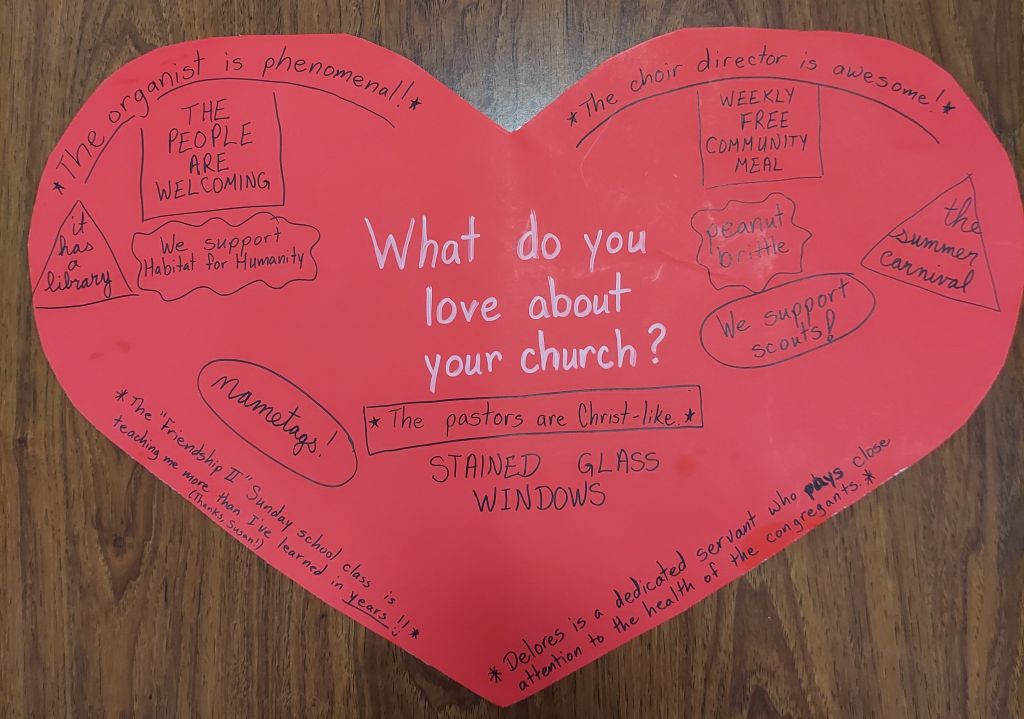 *The organist is phenomenal!*
*The choir director is awesome!*
THE
PEOPLE
ARE
WELCOMING
WEEKLY
FREE
COMMUNITY
MEAL
it
has
a
library
We support
Habitat for Humanity
What do you
love about
your church?
peanut
brittle
the
summer
carnival
We support
scouts!
nametags!
*The pastors are Christ-like.*
STAINED GLASS
WINDOWS
*The "Friendship II" Sunday school class is
teaching me more than I've learned in years!!*
(Thanks, Susan!)
*Delores is a dedicated servant who pays close
attention to the health of the congregants.*